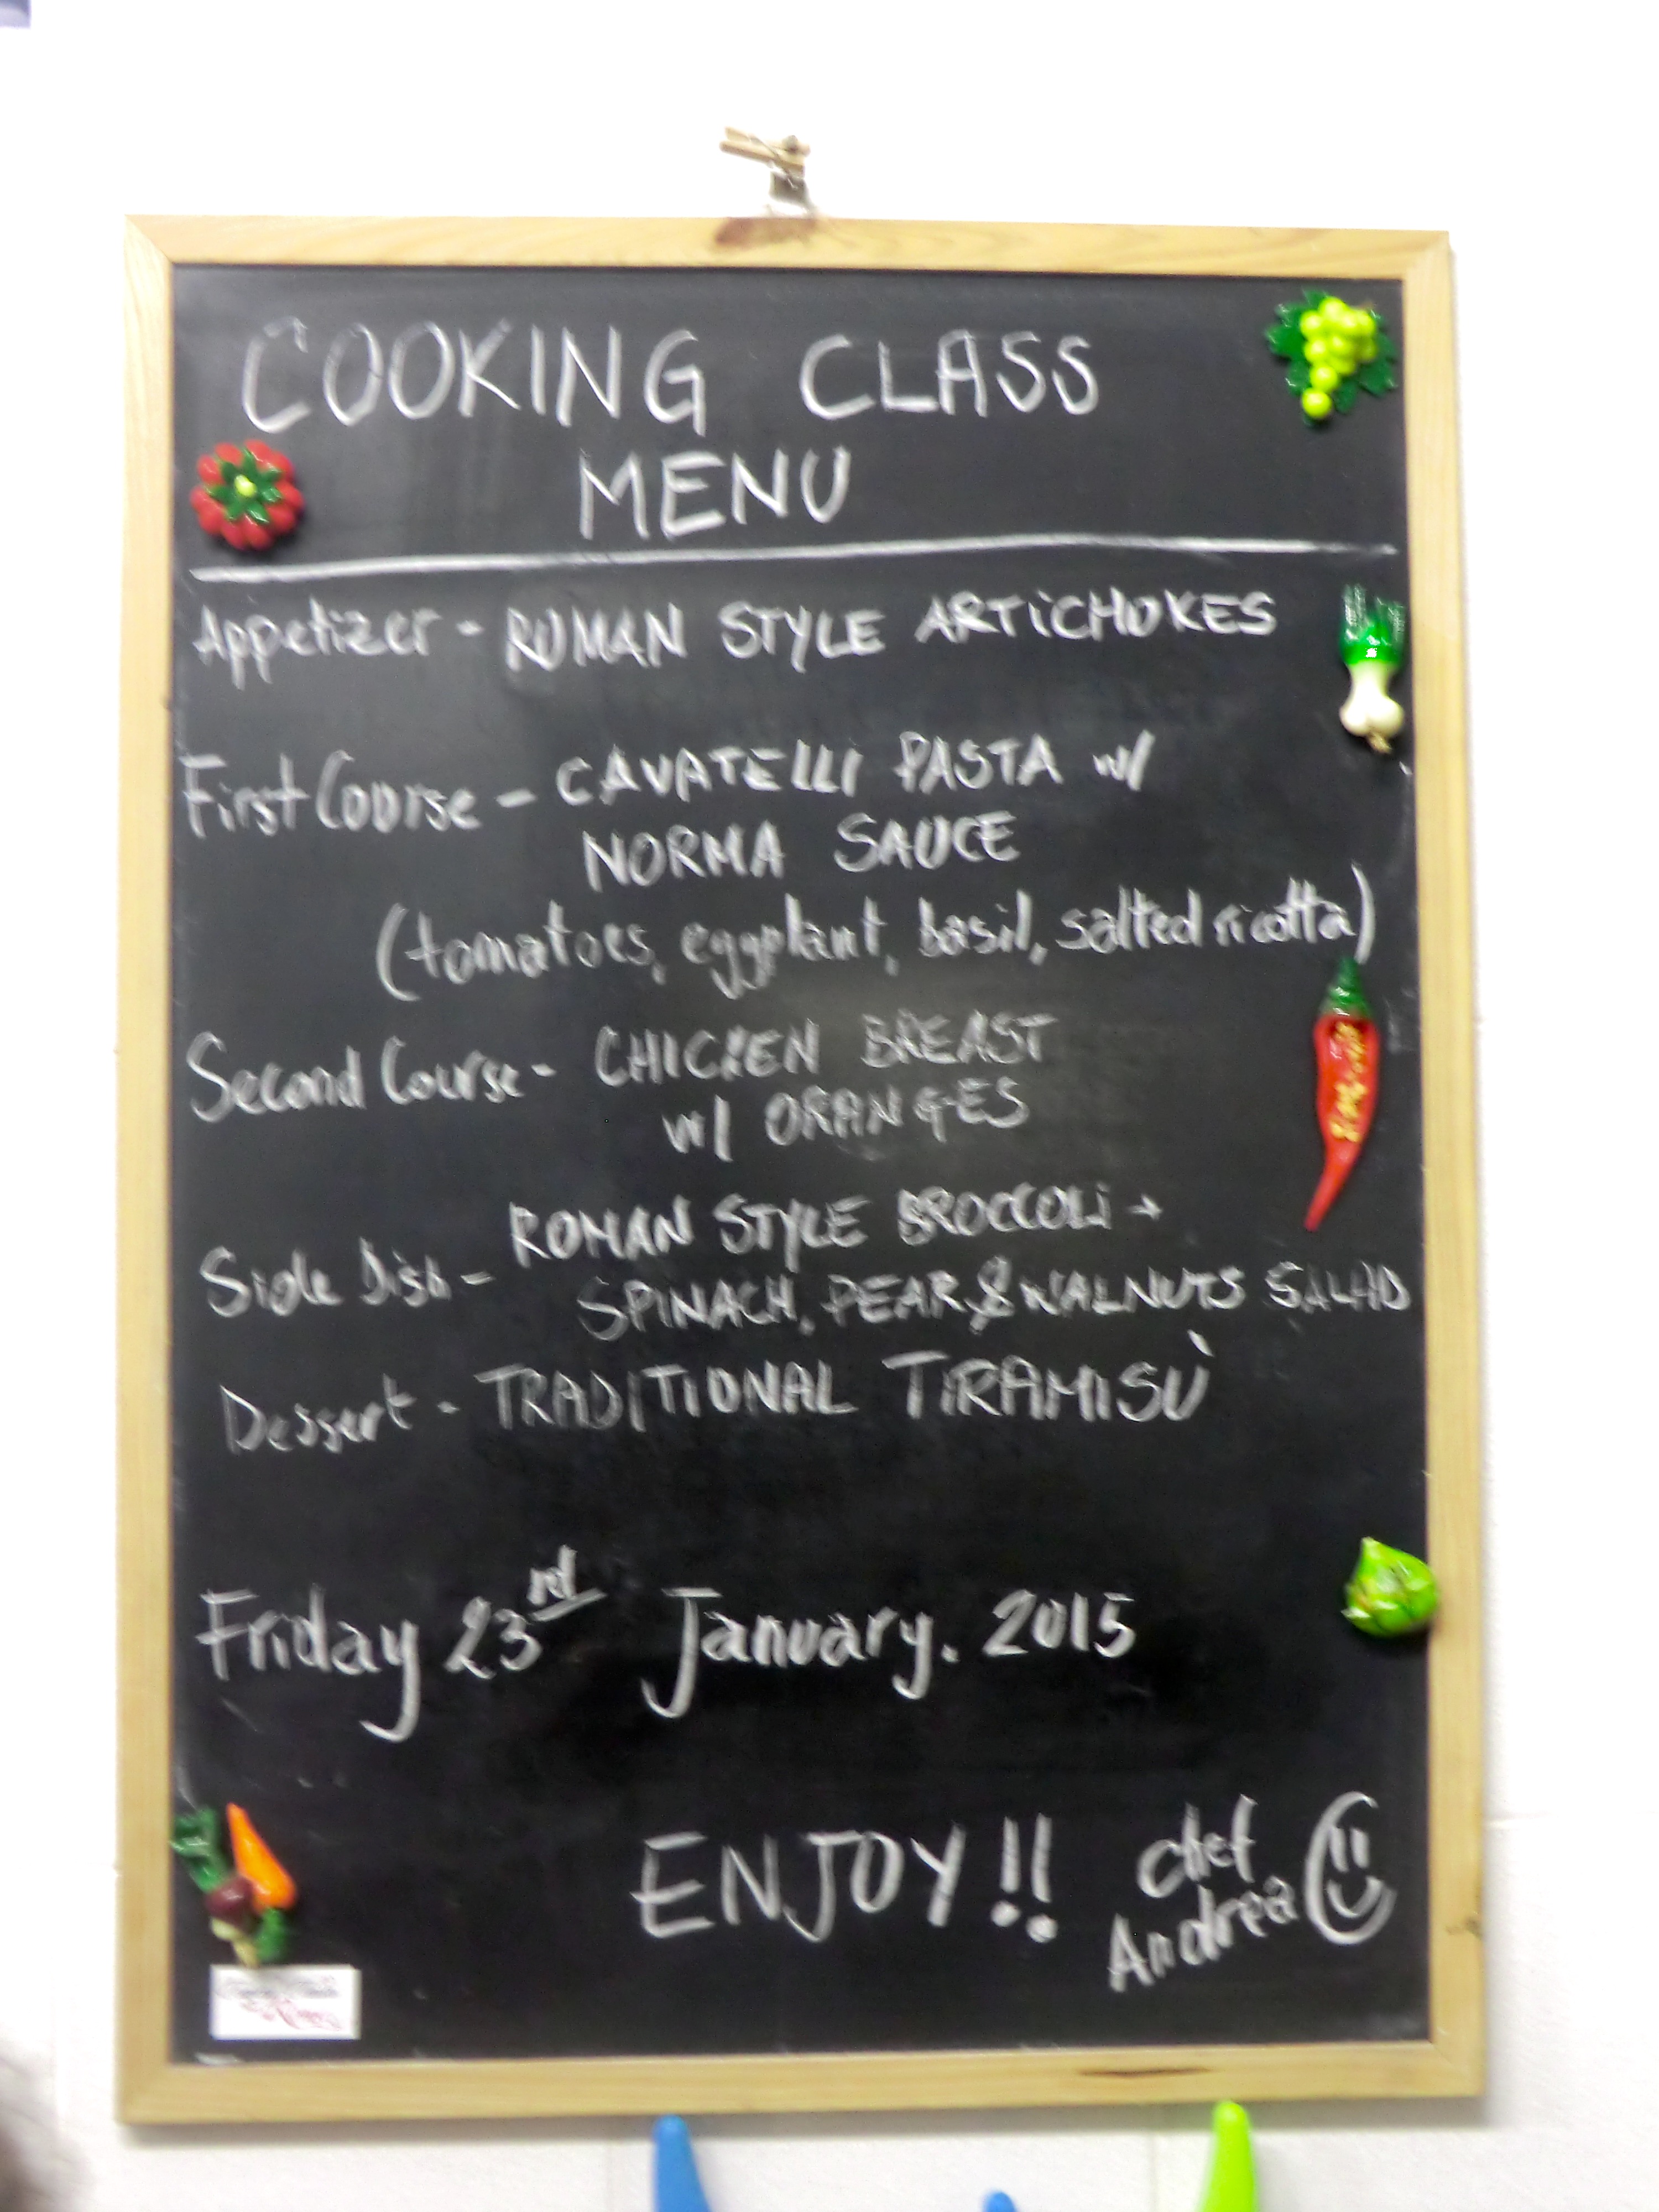 COOKING CLASS
MENU
Appetizer - ROMAN STYLE ARTiCHOKES
First Course - CAVATELLI PASTA w/
NORMA SAUCE
(tomatoes, eggplant, basil, salted ricotta)
Second Course - CHICKEN BREAST
w/ ORANGES
Side Dish - ROMAN STYLE BROCCOLi +
SPINACH, PEAR & WALNUTS SALAD
Dessert - TRADITIONAL TIRAMISÙ
Friday 23rd January. 2015
ENJOY!! chef
Andrea